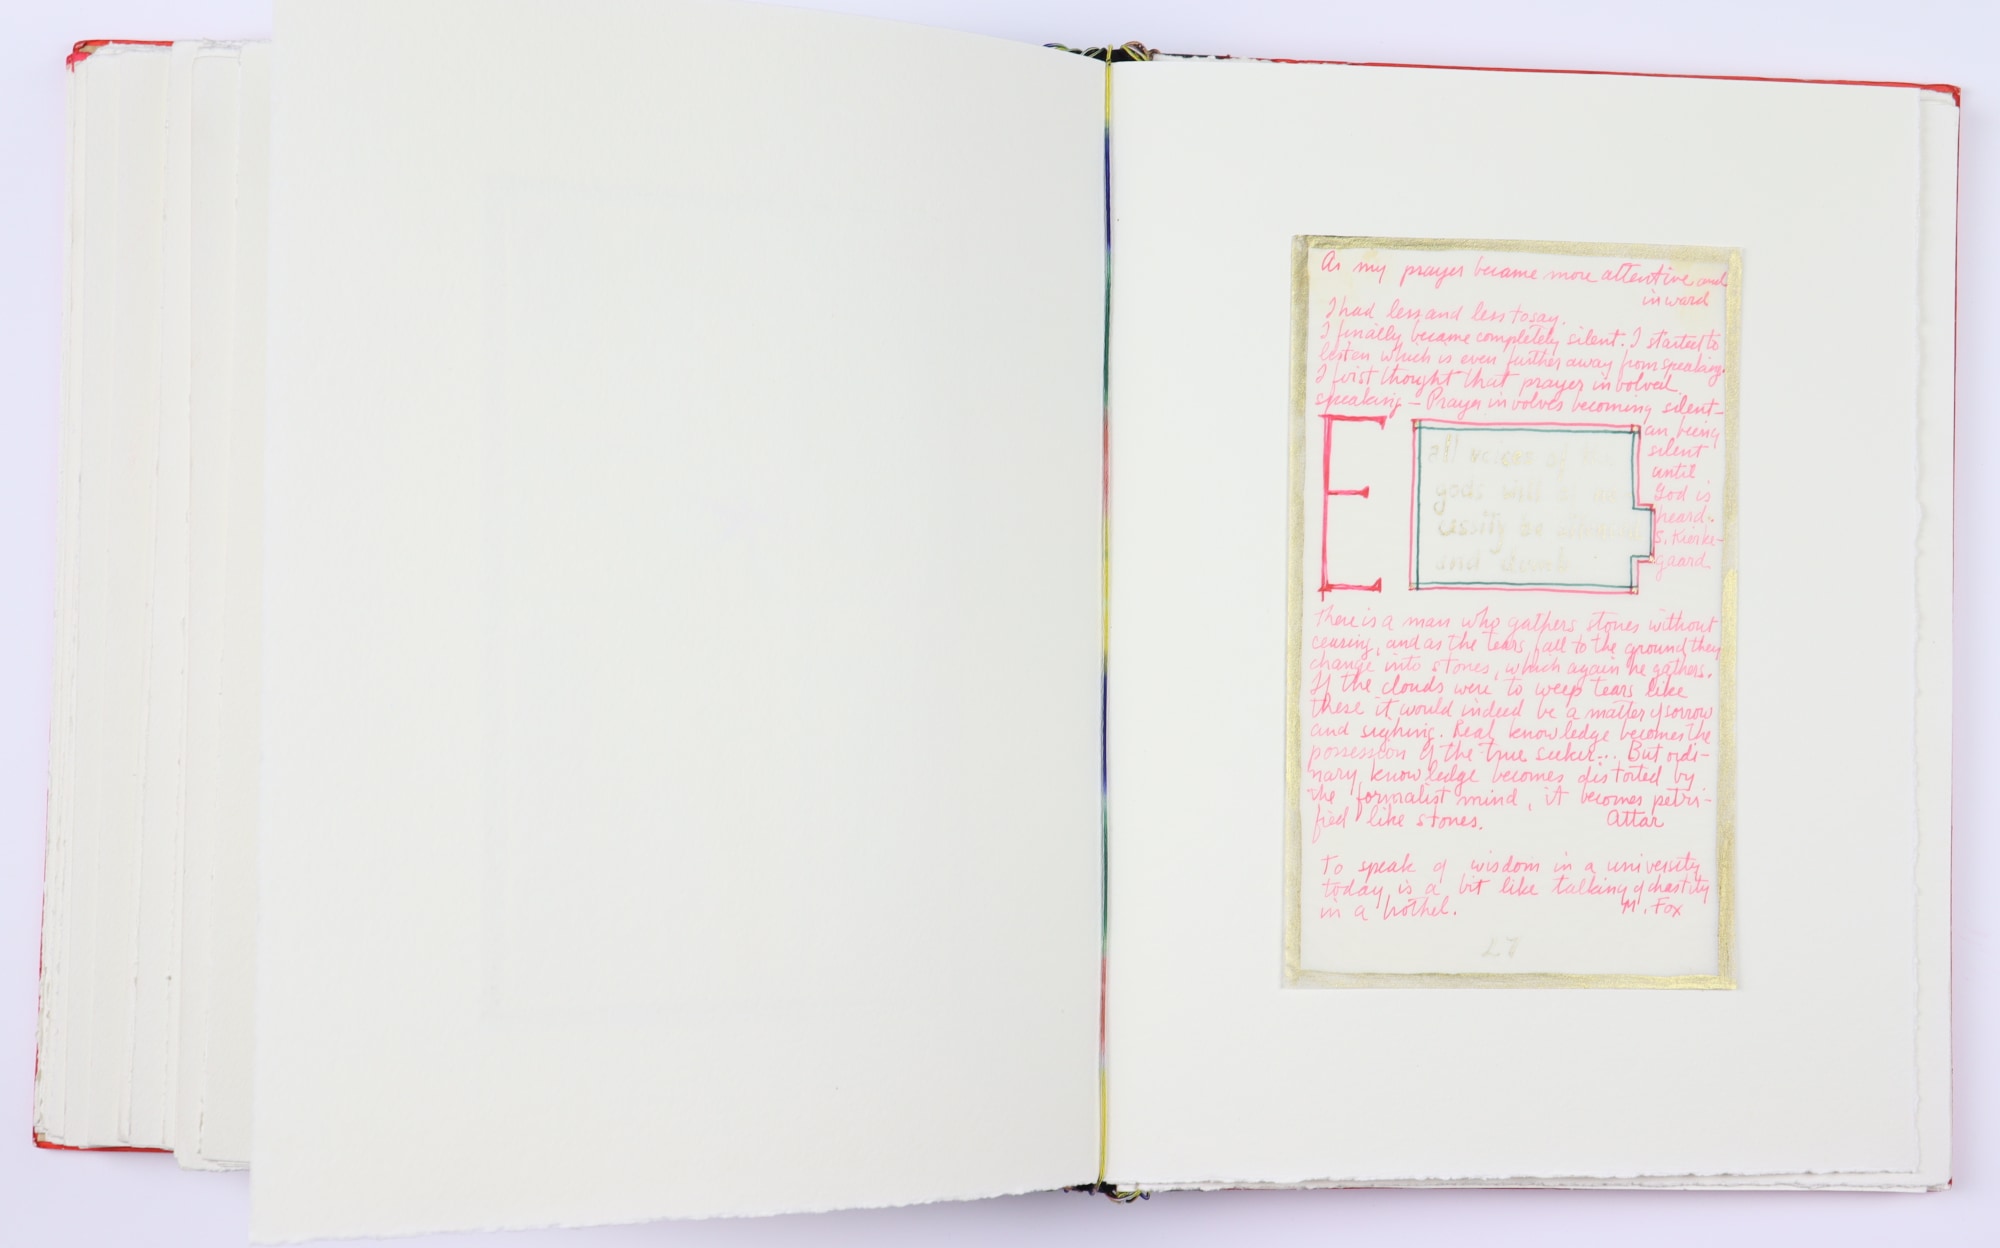 As my prayer became more attentive and
inward
I had less and less to say.
I finally became completely silent. I started to
listen which is even further away from speaking.
I first thought that prayer involved
speaking – Prayer involves becoming silent –
an being
silent
until
God is
heard.
S. Kierke-
gaard
E
all voices of the
gods will
cessity be
and dumb
There is a man who gathers stones without
ceasing, and as the tears fall to the ground they
change into stones, which again he gathers.
If the clouds were to weep tears like
these it would indeed be a matter of sorrow
and sighing. Real knowledge becomes the
possession of the true seeker... But ordi-
nary knowledge becomes distorted by
the formalist mind, it becomes petri-
fied like stones. Attar
To speak of wisdom in a university
today is a bit like talking of chastity
in a brothel. M. Fox